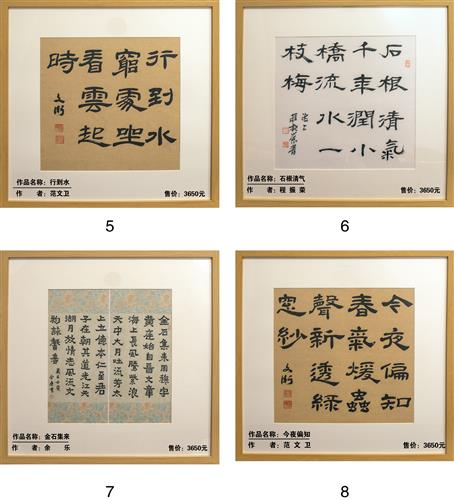 行到水
窮處坐
看雲起
時
文衛
作品名称：行到水
作 者：范文卫 售价：3650元
5
石根清氣
千年潤小
橋流水一
枝梅
作品名称：石根清气
作 者：程振荣 售价：3650元
6
金石集来
始自昌文章
海上長風騰紫浪
天中大月吐流芳太
上立德本仁至君
子在朝其道光江天
湖月放情志風流文
作品名称：金石集来
作 者：余 乐 售价：3650元
7
今夜偏知
春氣暖蟲
聲新透綠
窓紗
文衛
作品名称：今夜偏知
作 者：范文卫 售价：3650元
8